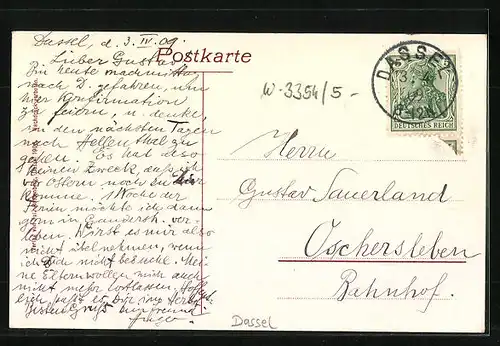 Dassel, d. 3. IV. 09.
Postkarte
Lieber Gustav!
Bin heute nachmittag
nach D. gefahren, um
hier Konfirmation
zu feiern, u. denke,
in den nächsten Tagen
nach Hellenthal zu
gehen. Es hat also
keinen Zweck, daß ich
vor Ostern noch zu Dir
komme. 1 Woche der
Ferien möchte ich dann
gern in Gandersh. ver-
leben. Wirst es mir also
nicht übelnehmen, wenn
ich Dich nicht besuche. Mei-
ne Eltern wollen mich auch
nicht mehr loslassen. Hoffent-
lich paßt es Dir im Herbst.
Besten Gruß
W-3354/5-
DASSEL
DEUTSCHES REICH
Herrn
Gustav Sauerland
Oschersleben
Bahnhof.
Dassel